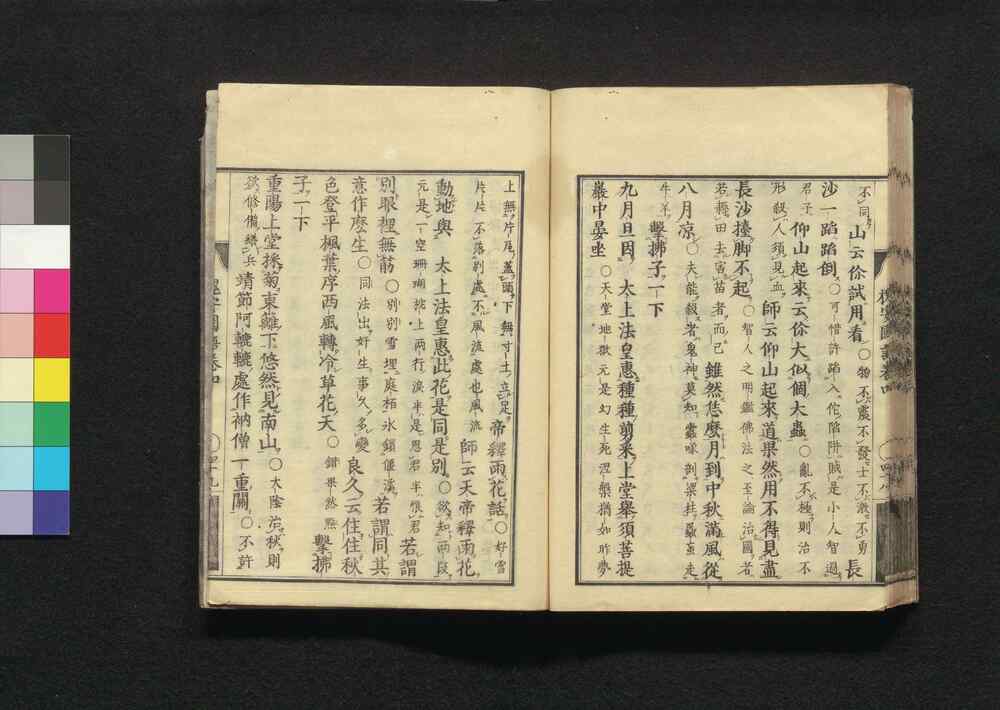 不同、山云你試用看○物不震不發士不激不勇長
沙一蹈蹈倒○可惜許踊入佗陷阱賊是小人智過
君子仰山起來云你大似個大蟲○亂不極則治不
形殺人須見血師云仰山起來道果然用不得見盡
長沙擡脚不起○智人之明鑑佛法之至論治國者
若耨田去害苗者而已雖然恁麼月到中秋滿風從
八月凉○夫能殺者鬼神莫知蠹啄剖梁柱蝨䖟走
牛羊擊拂子一下
九月旦因太上法皇惠種種剪采上堂擧須菩提
巖中晏坐○天堂地獄元是幻生死涅槃猶如昨夢
上無片瓦蓋頭下無寸土立足帝釋雨花話○好雪
片片不落別處不風流處也風流師云天帝釋雨花
動地與太上法皇惠此花是同是別○欲知兩段
元是一空珊瑚枕上兩行淚半是思君半恨君若謂
別眼裡無筋○別別雪埋庭柏氷鎖偃溪若謂同其
意作麼生○同法出奸生事久多變良久云住住秋
色登平楓葉序西風轉冷草花天○錯果然㸃擊拂
子一下
重陽上堂採菊東籬下悠然見南山○大陰治秋則
欲修備繕兵靖節阿轆轆處作衲僧一重關○不許